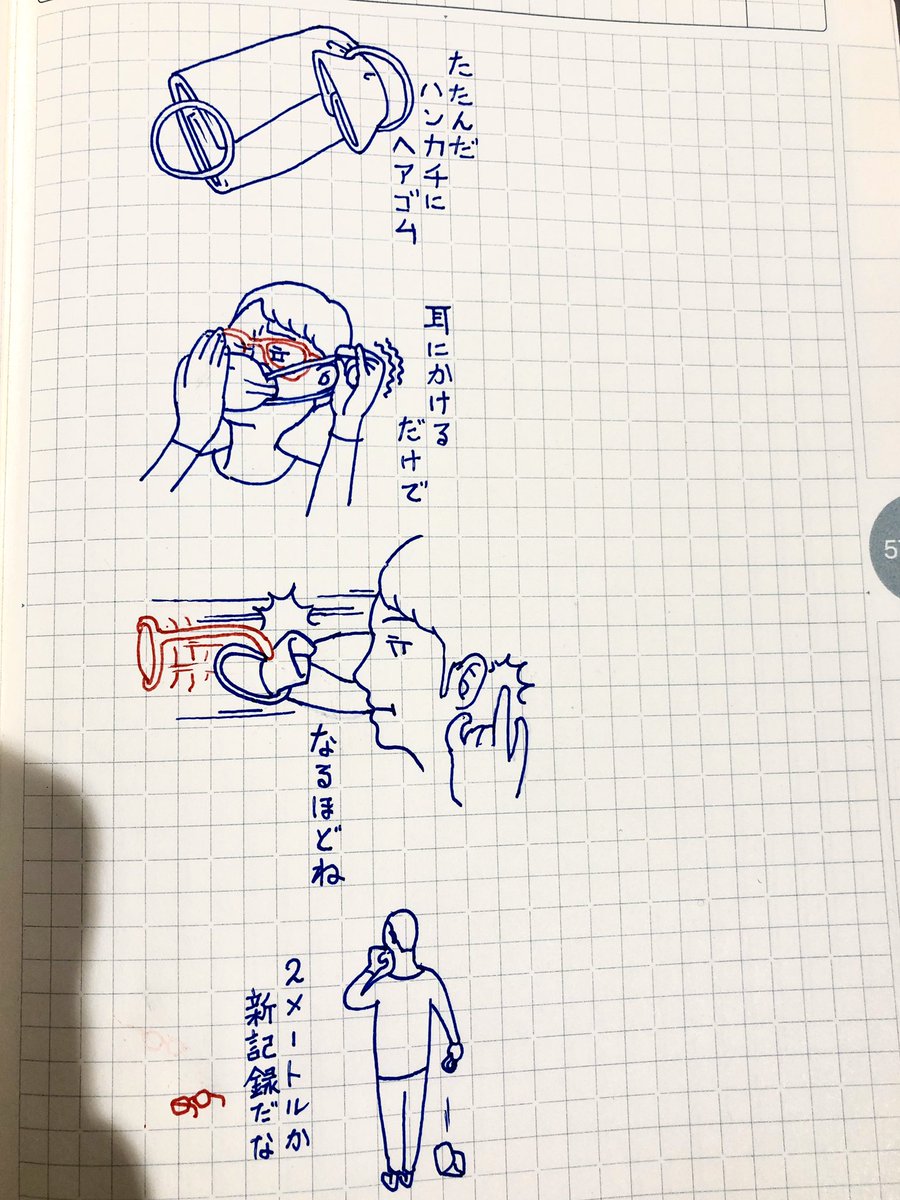 たたんだ
ハンカチに
ヘアゴム
耳にかける
だけで
なるほどね
2メートルか
新記録だな